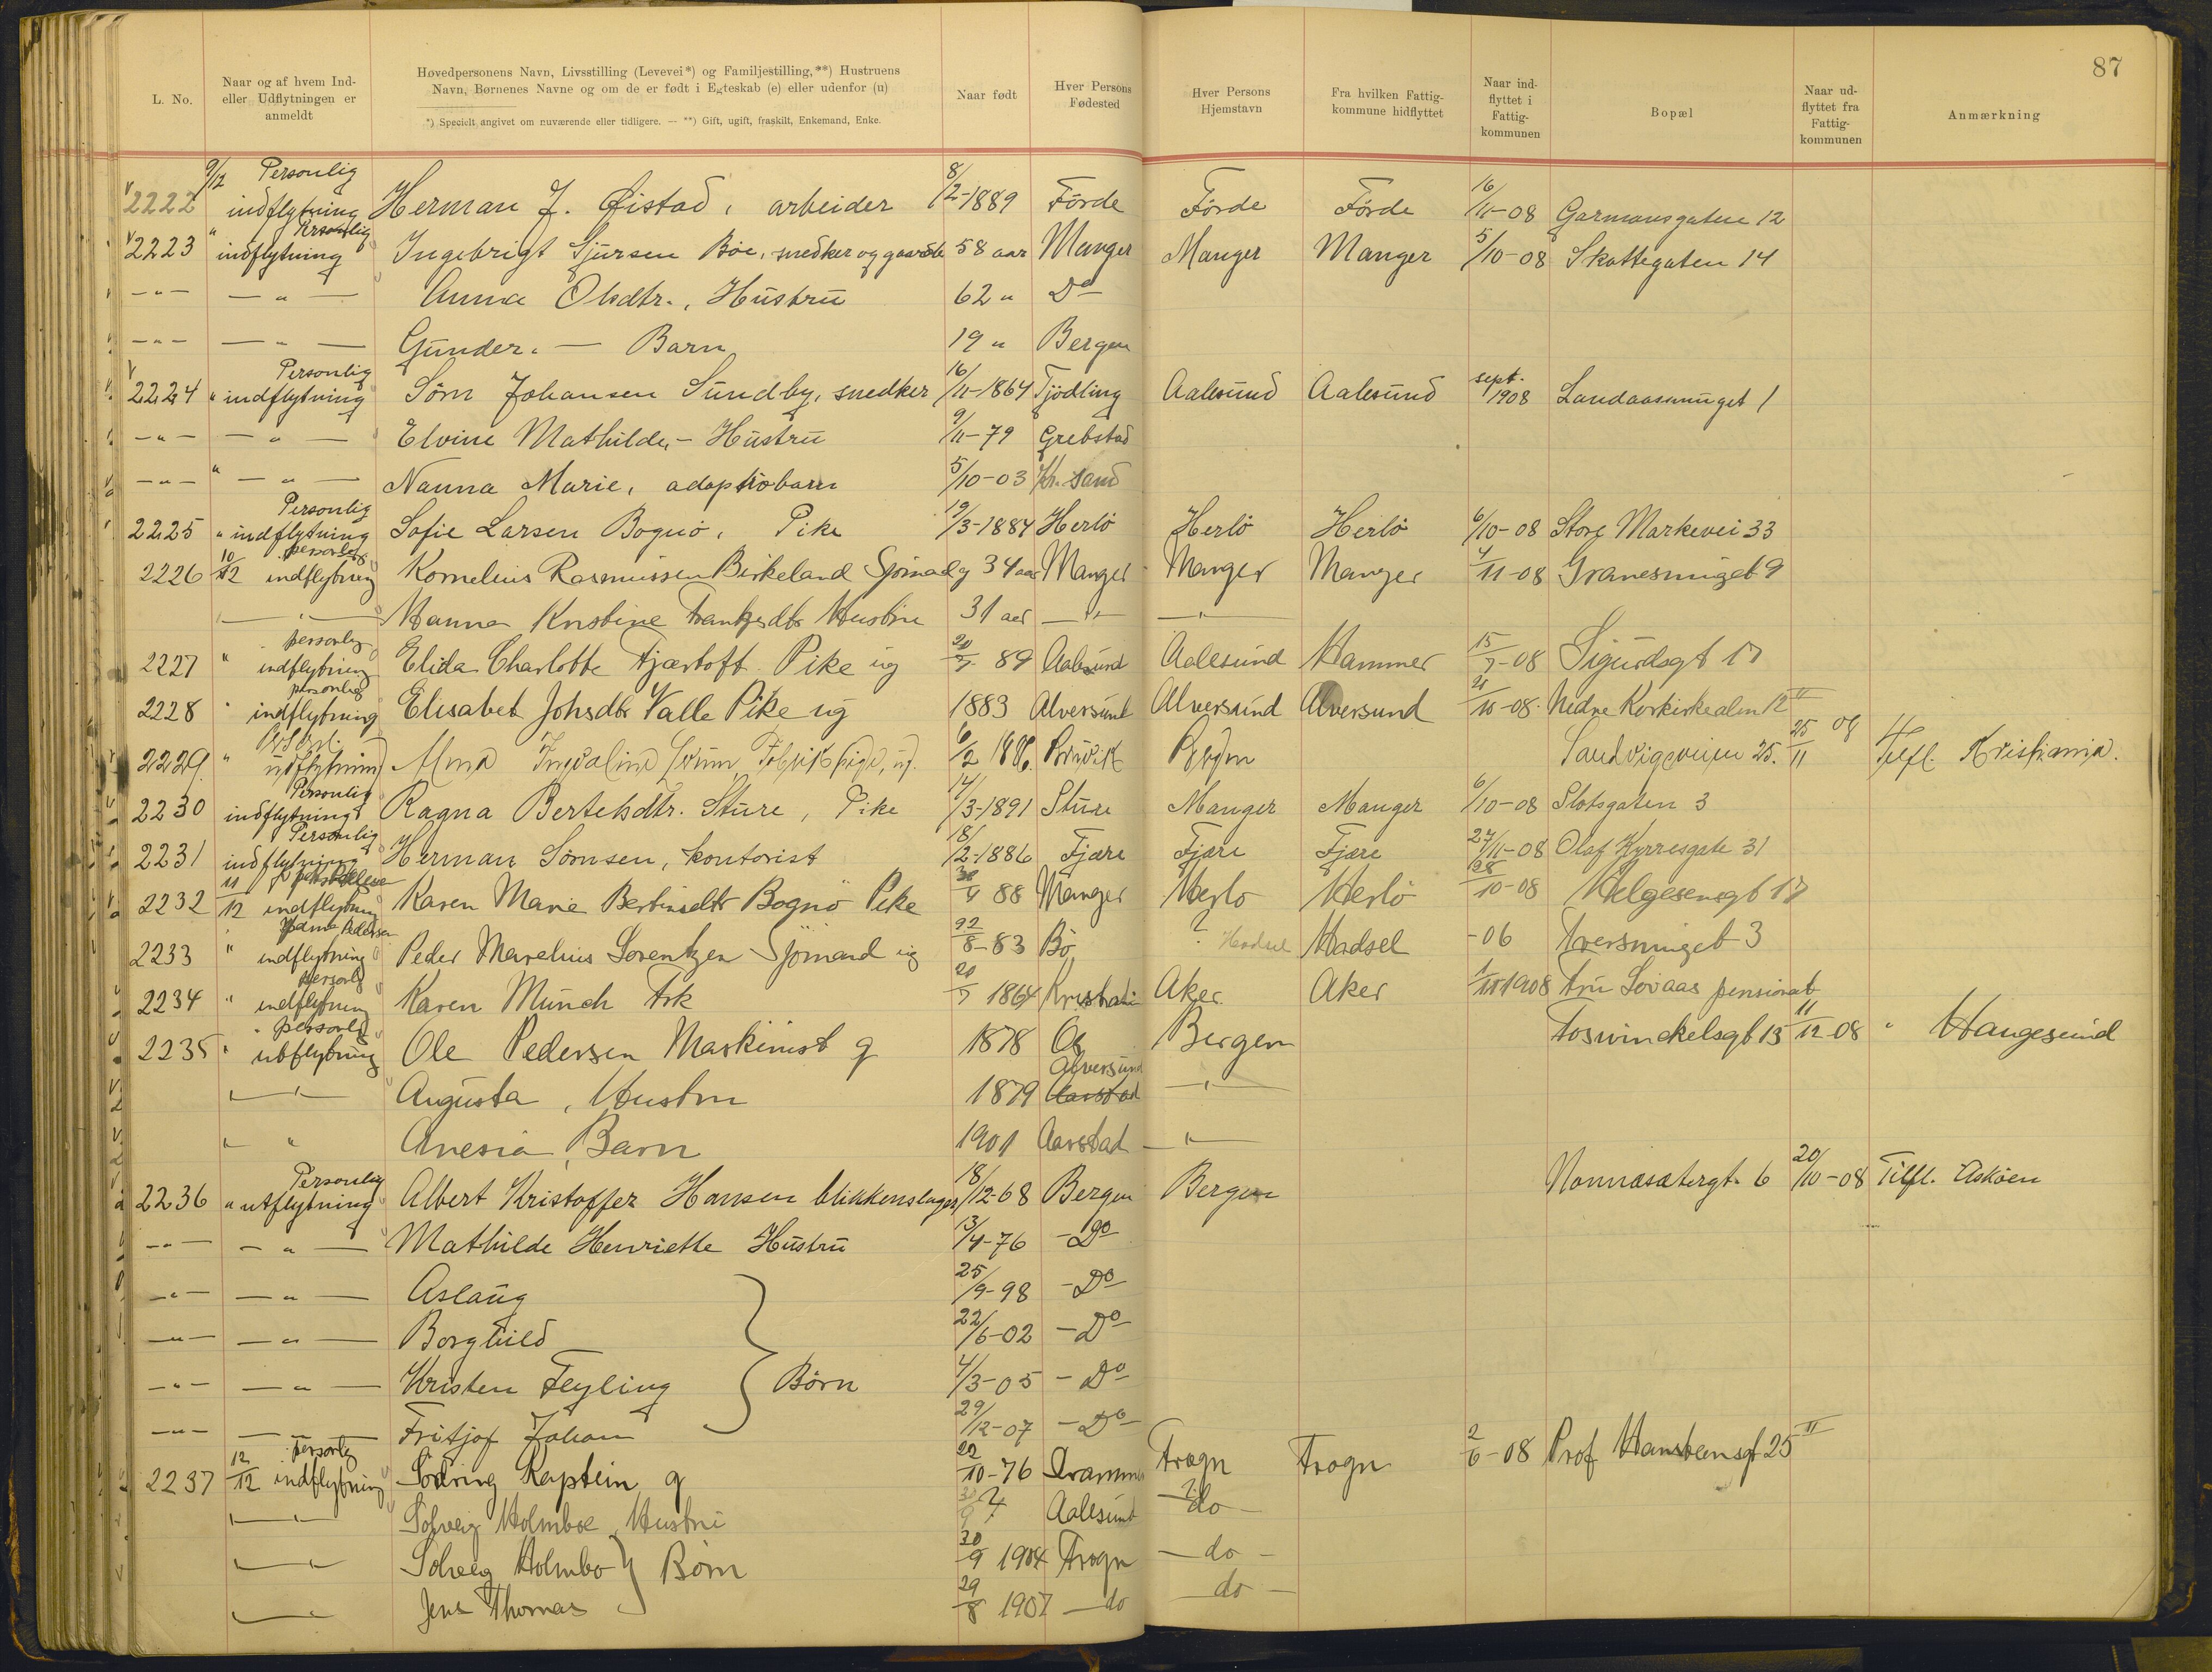 87
L. No.
Naar og af hvem Ind-
eller Udflytningen er
anmeldt
Høvedpersonens Navn, Livsstilling (Levevei*) og Familjestilling,**) Hustruens
Navn, Børnenes Navne og om de er født i Egteskab (e) eller udenfor (u)
*) Specielt angivet om nuværende eller tidligere. — **) Gift, ugift, fraskilt, Enkemand, Enke.
Naar født
Hver Persons
Fødested
Hver Persons
Hjemstavn
Fra hvilken Fattig-
kommune hidflyttet
Naar ind-
flyttet i
Fattig-
kommunen
Bopæl
Naar ud-
flyttet fra
Fattig-
kommunen
Anmærkning
2222 9/12 Personlig indflytning Herman J. Øistad, arbeider 8/12-1889 Förde Förde Förde 16/11-08 Garmansgaten 12
2223 " Personlig indflytning Ingebrigt Sjursen Böe, snedker og 58 aar Manger Manger Manger 5/10-08 Skottegaten 14
-"- -"- Anna Olsdtr., Hustru 62 " Do
-"- -"- Gunder. - Barn 19 " Bergen
2224 " Personlig indflytning Sörn Johansen Sundby, snedker 16/11-1864 Tjödling Aalesund Aalesund sept. 1908 Landaassmuget 1
-"- -"- Elvine Mathilde, - Hustru 9/11-79 Grebstad
-"- " -"- Nanna Marie, adoptivbarn 5/10-03 Kr. sand
2225 " Personlig indflytning Sofie Larsen Bognö, Pike 19/3-1884 Herlö Herlö Herlö 6/10-08 Store Markevei 33
2226 10/12 personlig indflytning Kornelius Rasmussen Birkeland Sjömand g 34 aar Manger Manger Manger 4/11-08 Granesmuget 9
-"- Hanna Kristine Hustru 31 aar -"- -"-
2227 " personlig indflytning Elida Charlotte Fjærtoft Pike ug 20/7 89 Aalesund Aalesund Hammer 15/7-08 Sigurdsgt 17
2228 " personlig indflytning Elisabet Johsdtr Valle Pike ug 1883 Alversund Alversund Alversund 21/10-08 Nedre Korskirkealm 12 II
2229 " udflytning Alma 6/2 1886 Bruvik Bergen Sandvigsveien 25. 25/11 08 Tilfl. Kristiania.
2230 Personlig indflytning Ragna Bertelsdtr. Sture, Pike 14/3-1891 Sture Manger Manger 6/10-08 Slotsgaten 3
2231 Personlig indflytning Herman Sörnsen, kontorist 18/12-1886 Fjære Fjære Fjære 27/11-08 Olaf Kyrresgate 31
2232 11/12 indflytning Karen Marie Bertinsdtr Bognö Pike 30/4 88 Manger Herlö Herlö 28/10-08 Helgesensgt 17
2233 " Pedersen indflytning Peder Marelius Lorentzen Sjömand ug 22/8-83 Bö ? Hadsel Hadsel -06 Tversmuget 3
2234 " personlig indflytning Karen Münch Frk 20/7 1864 Aker Aker 1/11 1908 Fru Lövaas pensionat
2235 " personlig utflytning Ole Pedersen Maskinist g 1878 Os Bergen Foswinckelsgt 13 11/12-08 " Haugesund
-"- Augusta, Hustru 1879 Alversund -"-
" " Anesia, Barn 1901 Aarstad -"-
2236 " Personlig utflytning Albert Kristoffer Hansen blikkenslager 18/12-68 Bergen Bergen Nonnesætergt. 6 20/10-08 Tilfl. Asköen
-"- -"- Mathilde Henriette Hustru 13/4-76 -Do
-"- -"- Aslaug 25/9-98 -Do
-"- -"- Borghild 22/6-02 -Do
-"- -"- Kristen Feyling } Börn 4/3-05 -Do
-"- -"- Fritjof Johan 29/12-07 -Do
2237 12/12 personlig indflytning Södring Kaptein g 22/10-76 Drammen Frogn Frogn 2/6-08 Prof Hansteensgt 25 II
-"- Solveig Holmboe Hustru 30/9 ? Aalesund -do-
-"- Solveig Holmbo } Börn 30/9 1904 Frogn -do-
-"- Jens Thomas 29/8 1907 -do -do-